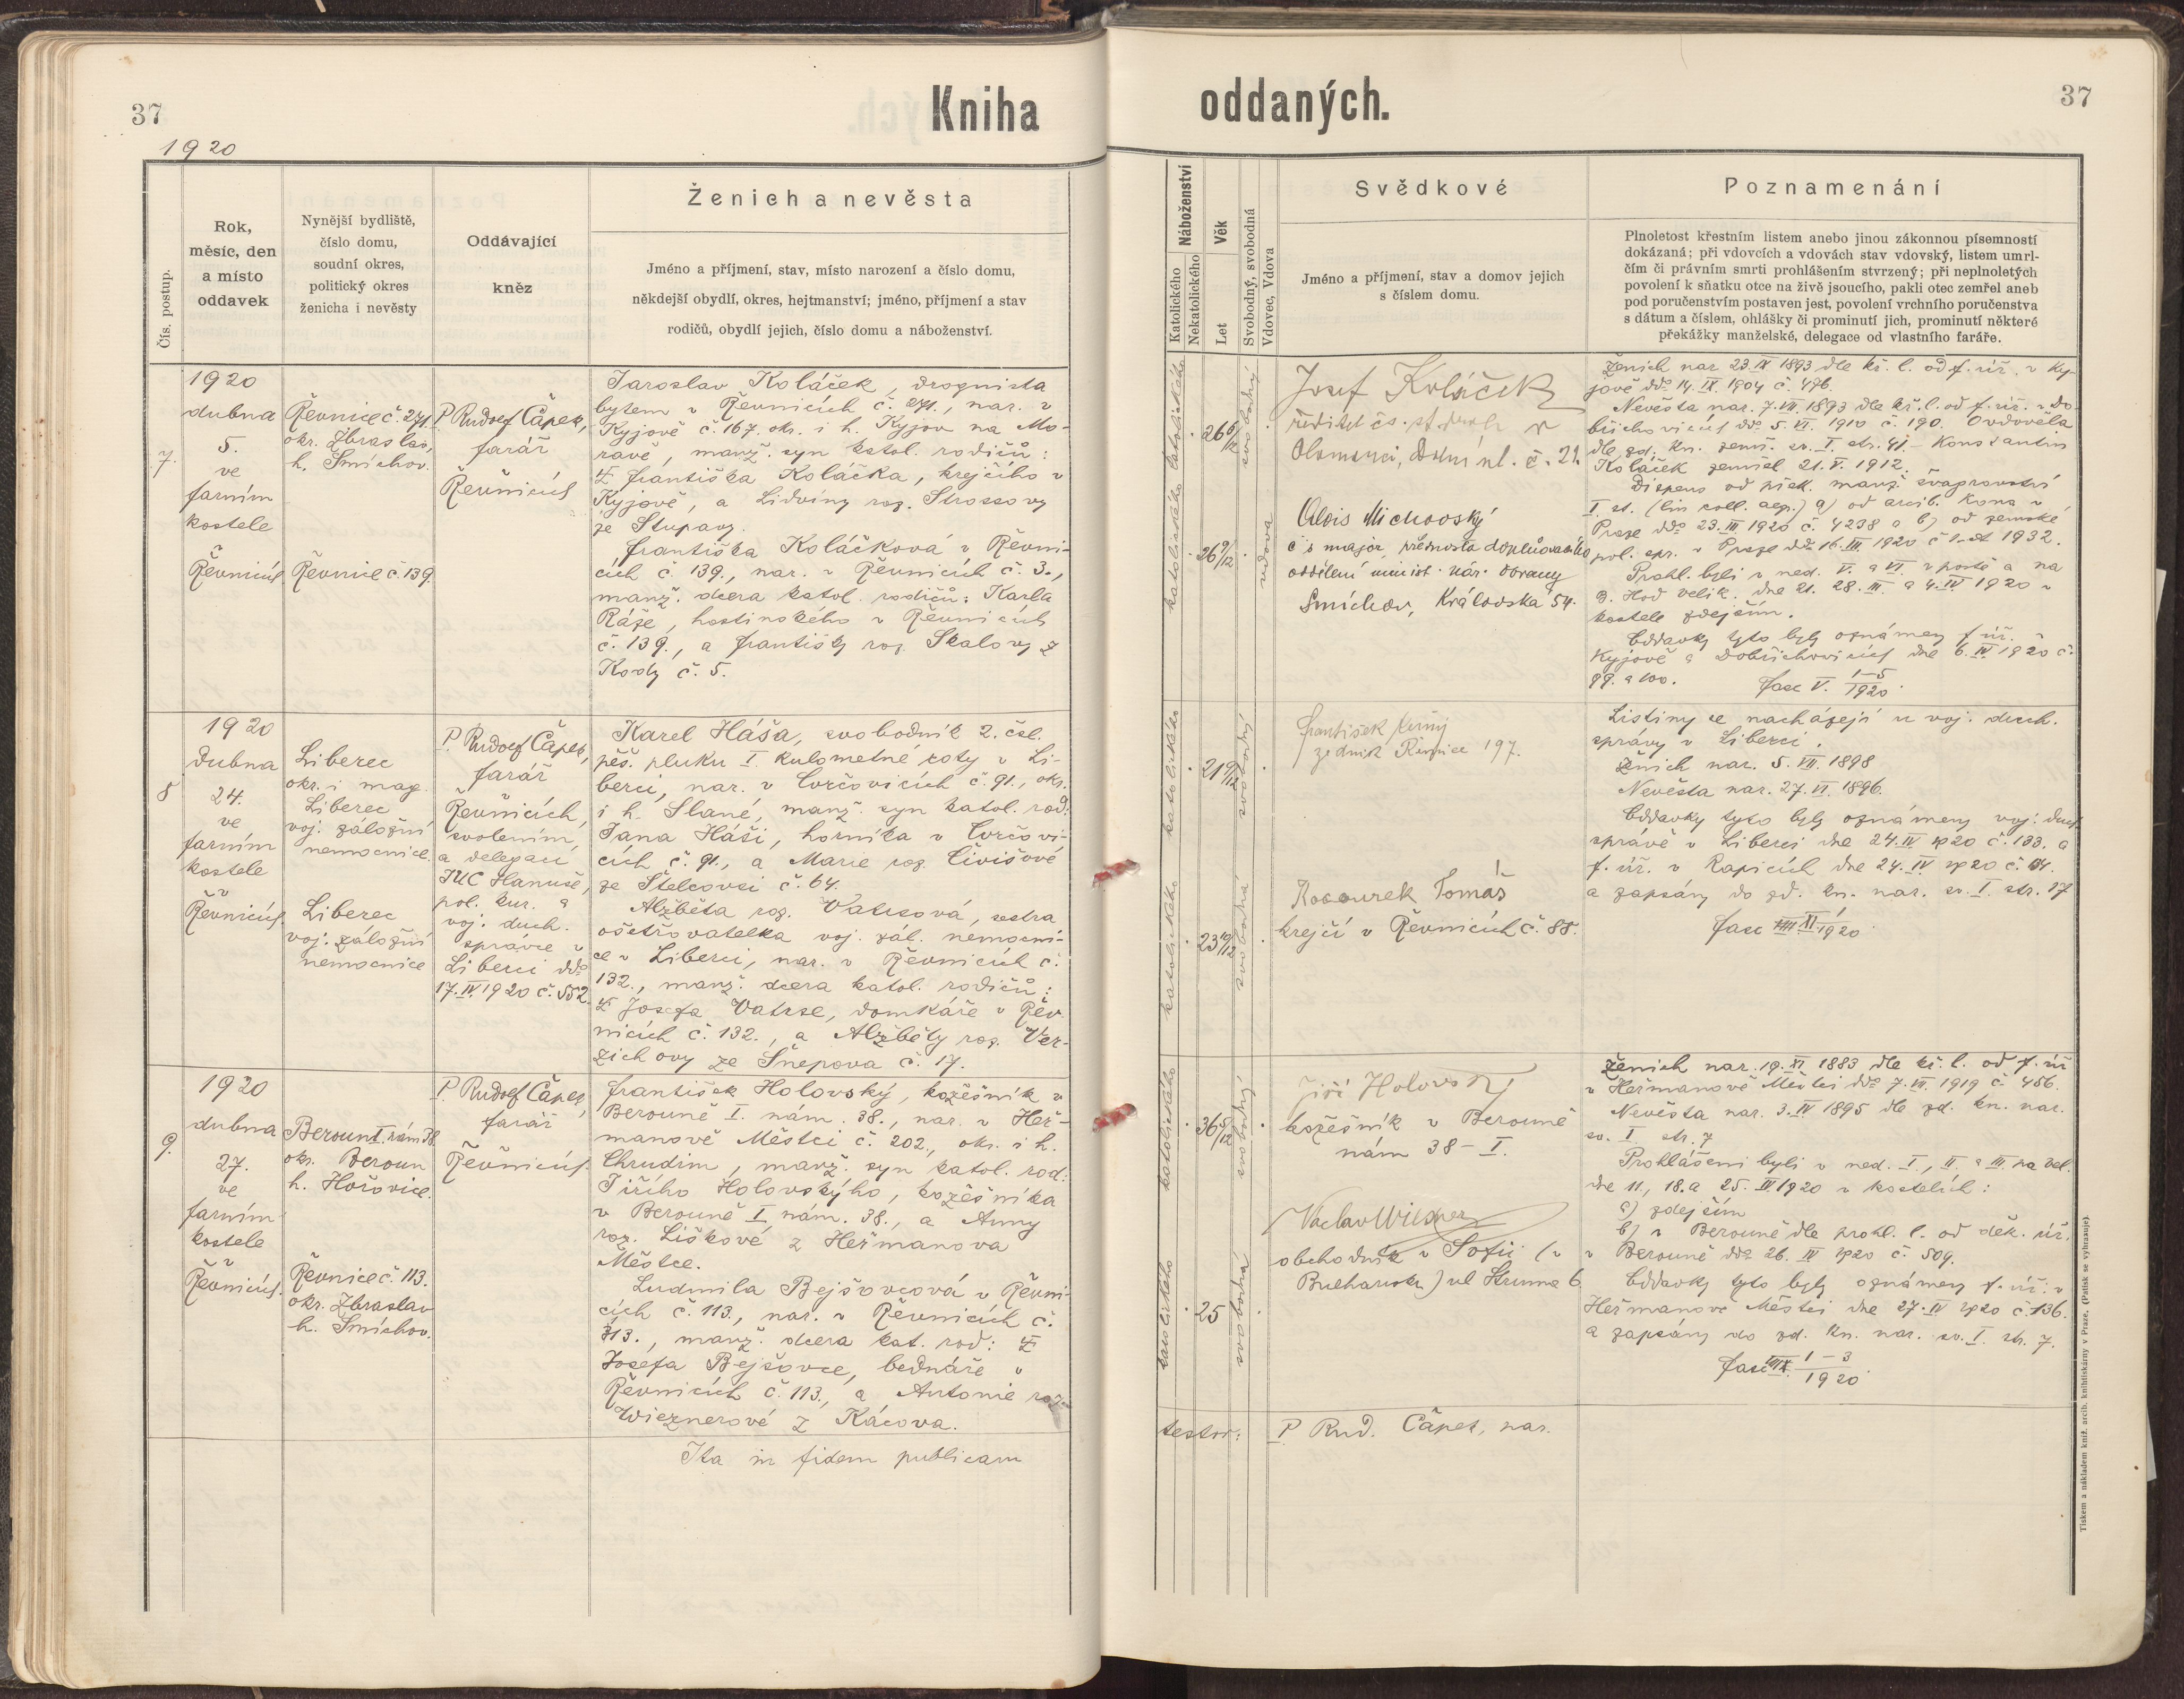 37
Kniha
1920
Čís. postup.
Rok,
měsíc, den
a místo
oddavek
Nynější bydliště,
číslo domu,
soudní okres,
politický okres
ženicha i nevěsty
Oddávající
kněz
Ženich a nevěsta
Jméno a příjmení, stav, místo narození a číslo domu,
někdejší obydlí, okres, hejtmanství; jméno, příjmení a stav
rodičů, obydlí jejich, číslo domu a náboženství.
7.
1920
dubna
5.
ve
farním
kostele
Řevnicích
Řevnice č. 271.
okr. Zbraslav,
h. Smíchov.
Řevnice č. 139.
P. Rudolf Čápek,
farář
Řevnicích
Jaroslav Koláček, drognista
bytem v Řevnicích č. 271., nar. v
Kyjově č. 167. okr. i h. Kyjov na Mo-
ravě, manž. syn katol. rodičů:
Františka Koláčka, krejčího v
Kyjově, a Lidviny roz. Strossovy
ze Stupavy.
Františka Koláčková v Řevni-
cích č. 139., nar. v Řevnicích č. 3.,
manž. dcera katol. rodičů: Karla
Ráže, hostinského v Řevnicích
č. 139., a Františky roz. Skalovy z
Kody č. 5.
8
1920
dubna
24.
ve
farním
kostele
Řevnicích
Liberec
okr. i mag.
Liberec
voj. záložní
nemocnice.
Liberec
voj. záložní
nemocnice
P. Rudolf Čápek,
farář
Řevnicích,
svolením,
a delegací
JUC Hanuše,
pol. kur. a
voj. duch.
správce v
Liberci ddo
17.IV.1920 č. 552.
Karel Háša, svobodník 2. čsl.
pěš. pluku I. kulometné roty v Li-
berci, nar. v Cvrčovicích č. 91., okr.
i h. Slané, manž. syn katol. rod:
Jana Háši, horníka v Cvrčovi-
cích č. 91., a Marie roz. Čivišové
ze Štelcovsi č. 64.
Alžběta roz. Vatrsová, sestra
ošetřovatelka voj. zál. nemocni-
ce v Liberci, nar. v Řevnicích č.
132., manž. dcera katol. rodičů:
Josefa Vatrse, domkáře v Řev-
nicích č. 132., a Alžběty roz. Ver-
zichovy ze Šnepova č. 17.
9.
1920
dubna
27.
ve
farním
kostele
Řevnicích.
Beroun I. nám 38.
okr. Beroun
h. Hořovice.
Řevnice č. 113.
okr. Zbraslav
h. Smíchov.
P. Rudolf Čápek,
farář
Řevnicích.
František Holovský, kožešník v
Berouně I. nám. 38., nar. v Heř-
manově Městci č. 202., okr. i h.
Chrudim, manž. syn katol. rod:
Jiřího Holovského, kožešníka
v Berouně I nám. 38., a Anny
roz. Liškové z Heřmanova
Městce.
Ludmila Bejšovcová v Řevni-
cích č. 113., nar. v Řevnicích č.
113., manž. dcera kat. rod:
Josefa Bejšovce, bednáře v
Řevnicích č. 113., a Antonie roz.
Wieznerové z Kácova.
Ita in fidem publicam
oddaných.
37
Náboženství
Katolického
Nekatolického
Věk
Let
Svobodný, svobodná
Vdovec, Vdova
Svědkové
Jméno a příjmení, stav a domov jejich
s číslem domu.
Poznamenání
Plnoletost křestním listem anebo jinou zákonnou písemností
dokázaná; při vdovcích a vdovách stav vdovský, listem úmrt-
čím či právním smrti prohlášením stvrzený; při neplnoletých
povolení k sňatku otce na živě jsoucího, pakli otec zemřel aneb
pod poručenstvím postaven jest, povolení vrchního poručenstva
s dátum a číslem, ohlášky či prominutí jich, prominutí některé
překážky manželské, delegace od vlastního faráře.
katolického
26 6/12
svobodný
katolického
26 9/12
vdova
Josef Koláček
ředitel čs. st. v
Olomouci, Dolní nl. č. 21.
Alois Michovský
čs major, přednosta doplňovacího
oddělení minist. nár. obrany
Smíchov, Královská 54.
Ženich nar. 23.IX 1893 dle kř. l. od f. úř. v Ky-
jově ddo 14.IX.1904 č. 496.
Nevěsta nar. 7.VII.1893 dle kř. l. od f. úř. v Do-
břichovicích ddo 5.VI.1910 č. 190. Ovdověla
dle zd. kn. zemř. sv. I. str. 41 - Konstantin
Koláček zemřel 21.V.1912.
Dispens od přek. manž. švagrovství
I. st. (lin coll. aeq.) a) od arcib. kons v
Praze ddo 23.III 1920 č. 4238 a b) od zemské
pol. spr. v Praze ddo 16.III.1920 č 1932.
Prohl. byli v ned. V. a VI. v postě a na
B. Hod Velik. dne 21. 28. III. a 4.IV.1920 v
kostele zdejším.
Oddavky tyto byly oznámeny f. úř. v
Kyjově a Dobřichovicích dne 6.IV 1920 č.
99. a 100.
fasc V. 1-5/1920.
katolického
21 9/12
svobodný
katolického
23 10/12
svobodná
František Černý
zedník Řevnice 197.
Kocourek Tomáš
krejčí v Řevnicích č. 88.
Listiny se nacházejí u voj. duch.
správy v Liberci.
Ženich nar. 5.VII.1898
Nevěsta nar. 27.VI.1896.
Oddavky tyto byly oznámeny voj. duch.
správě v Liberci dne 24.IV 1920 č. 133. a
f. úř. v Rapicích dne 24.IV 1920 č. 134.
a zapsány do zd. kn. nar. sv. I. str. 17
fasc VI. 1/1920
katolického
36 5/12
svobodný
katolického
25
svobodná
Jiří Holovský
kožešník v Berouně
nám 38 - I.
Václav Wiesner
obchodník v Sofii (v
Bulharsku) ul Struma 6
Ženich nar. 19.XI 1883 dle kř. l. od f. úř
v Heřmanově Městci ddo 7.VII.1919 č. 456.
Nevěsta nar. 3.IV 1895 dle zd. kn. nar.
sv. I. str. 7
Prohlášeni byli v ned. I., II. a III. po Vel.
dne 11, 18. a 25. IV 1920 v kostelích:
a) zdejším
b) v Berouně dle prohl. l. od děk. úř.
v Berouně ddo 26. IV 1920 č. 509.
Oddavky tyto byly oznámeny f. úř. v
Heřmanově Městci dne 27.IV 1920 č. 136.
a zapsány do zd. kn. nar. sv. I. str. 7.
fasc 1-3/1920.
testor:
P Rud. Čápek, nar.
Tiskem a nákladem kniž. arcib. knihtiskárny v Praze. (Patisk se vyhrazuje)